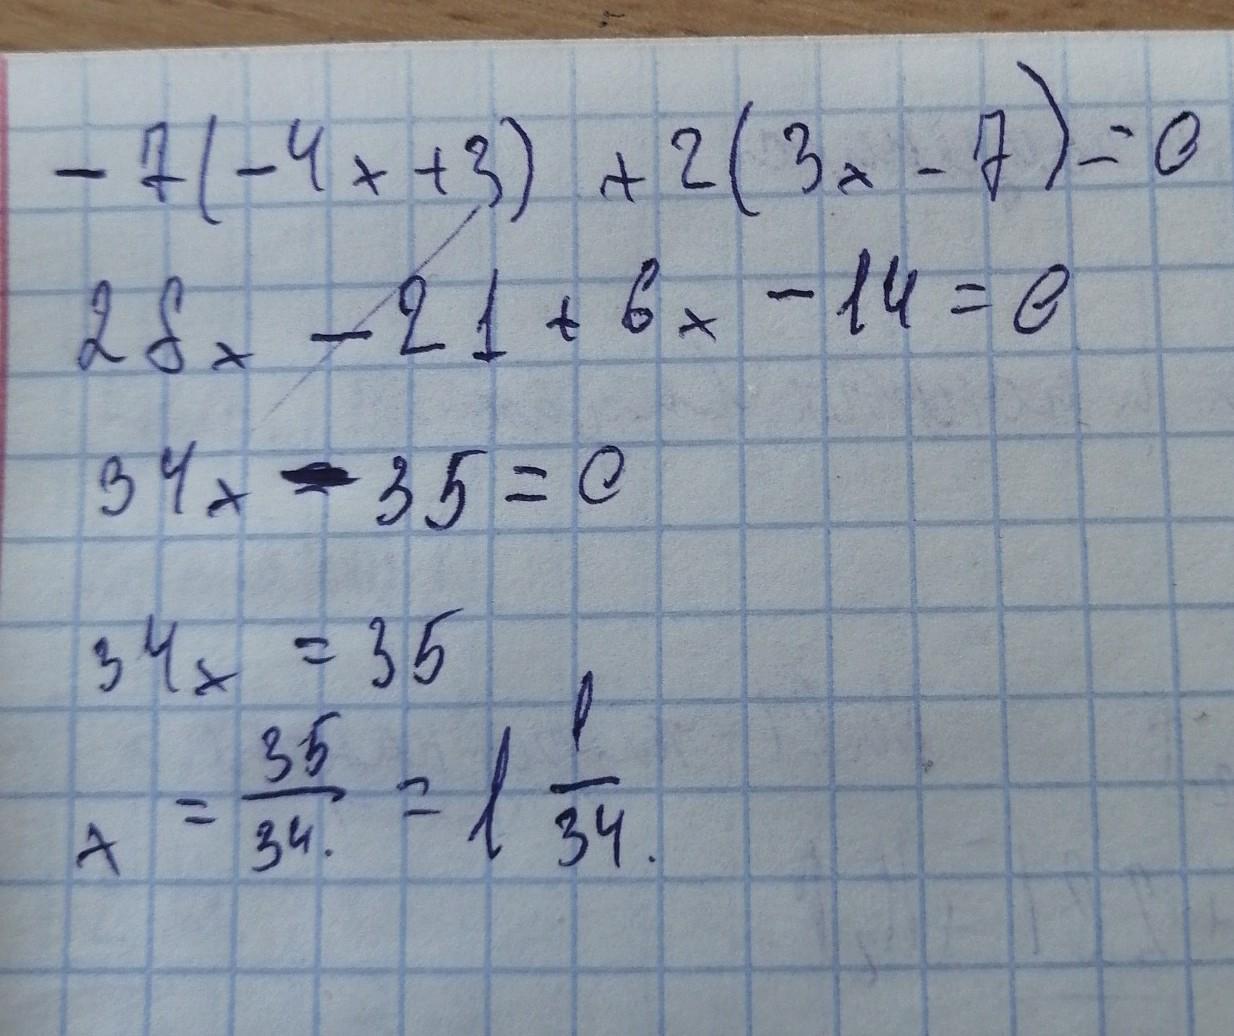 -7(-4x+3) +2(3x-7)=0
28x -21+6x-14=0
34x-35=0
34x =35
x = 35/34. = 1 1/34.